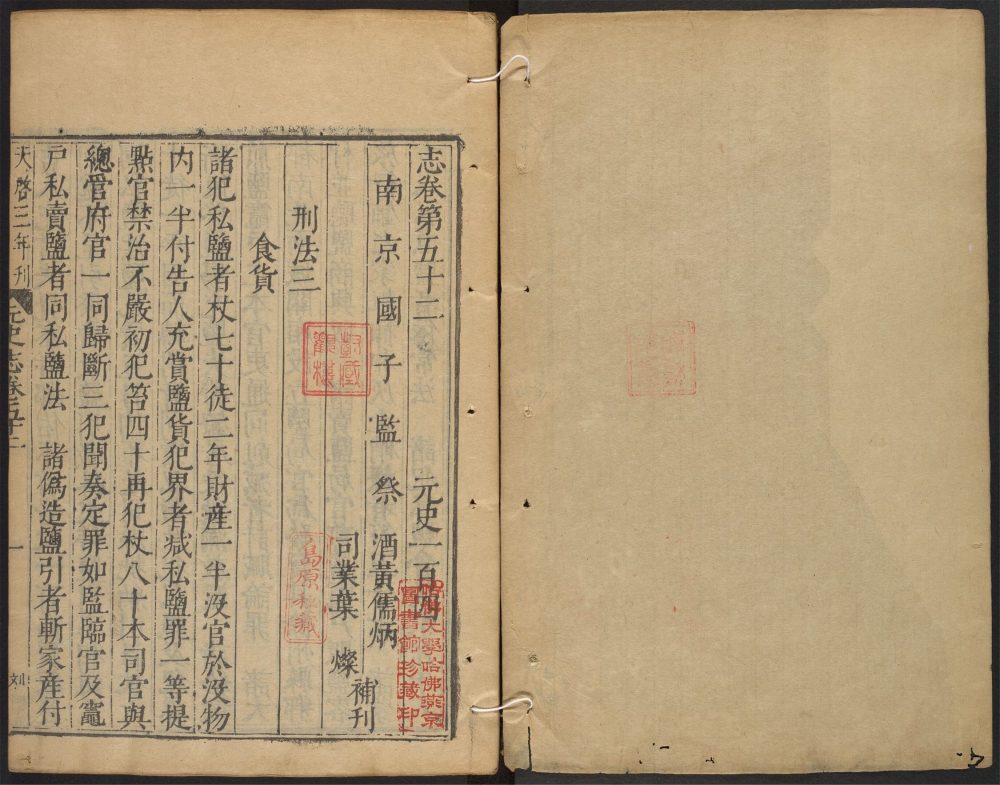 志卷第五十二 元史一百四
南京國子監祭酒黃儒炳
司業葉燦
補刊
刑法三
食貨
諸犯私鹽者杖七十徒二年財産一半没官於没物
内一半付告人充賞鹽貨犯界者減私鹽罪一等提
點官禁治不嚴初犯笞四十再犯杖八十本司官與
總管府官一同歸斷三犯聞奏定罪如監臨官及竈
戶私賣鹽者同私鹽法 諸僞造鹽引者斬家産付
天啓三年刊 元史志卷五十二 一
哈佛大學哈佛燕京
圖書館珍藏印
島原秘藏